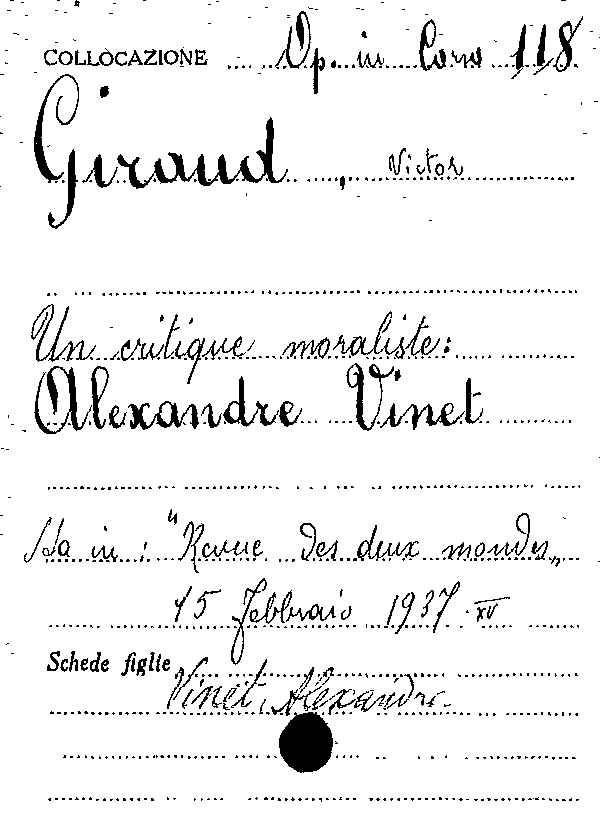 COLLOCAZIONE Op. in Corso 118
Giraud, Victor
Un critique moraliste:
Alexandre Vinet
Sta in: "Revue des deux mondes„
15 Febbraio 1937 XV
Schede figlie Vinet, Alexandre.